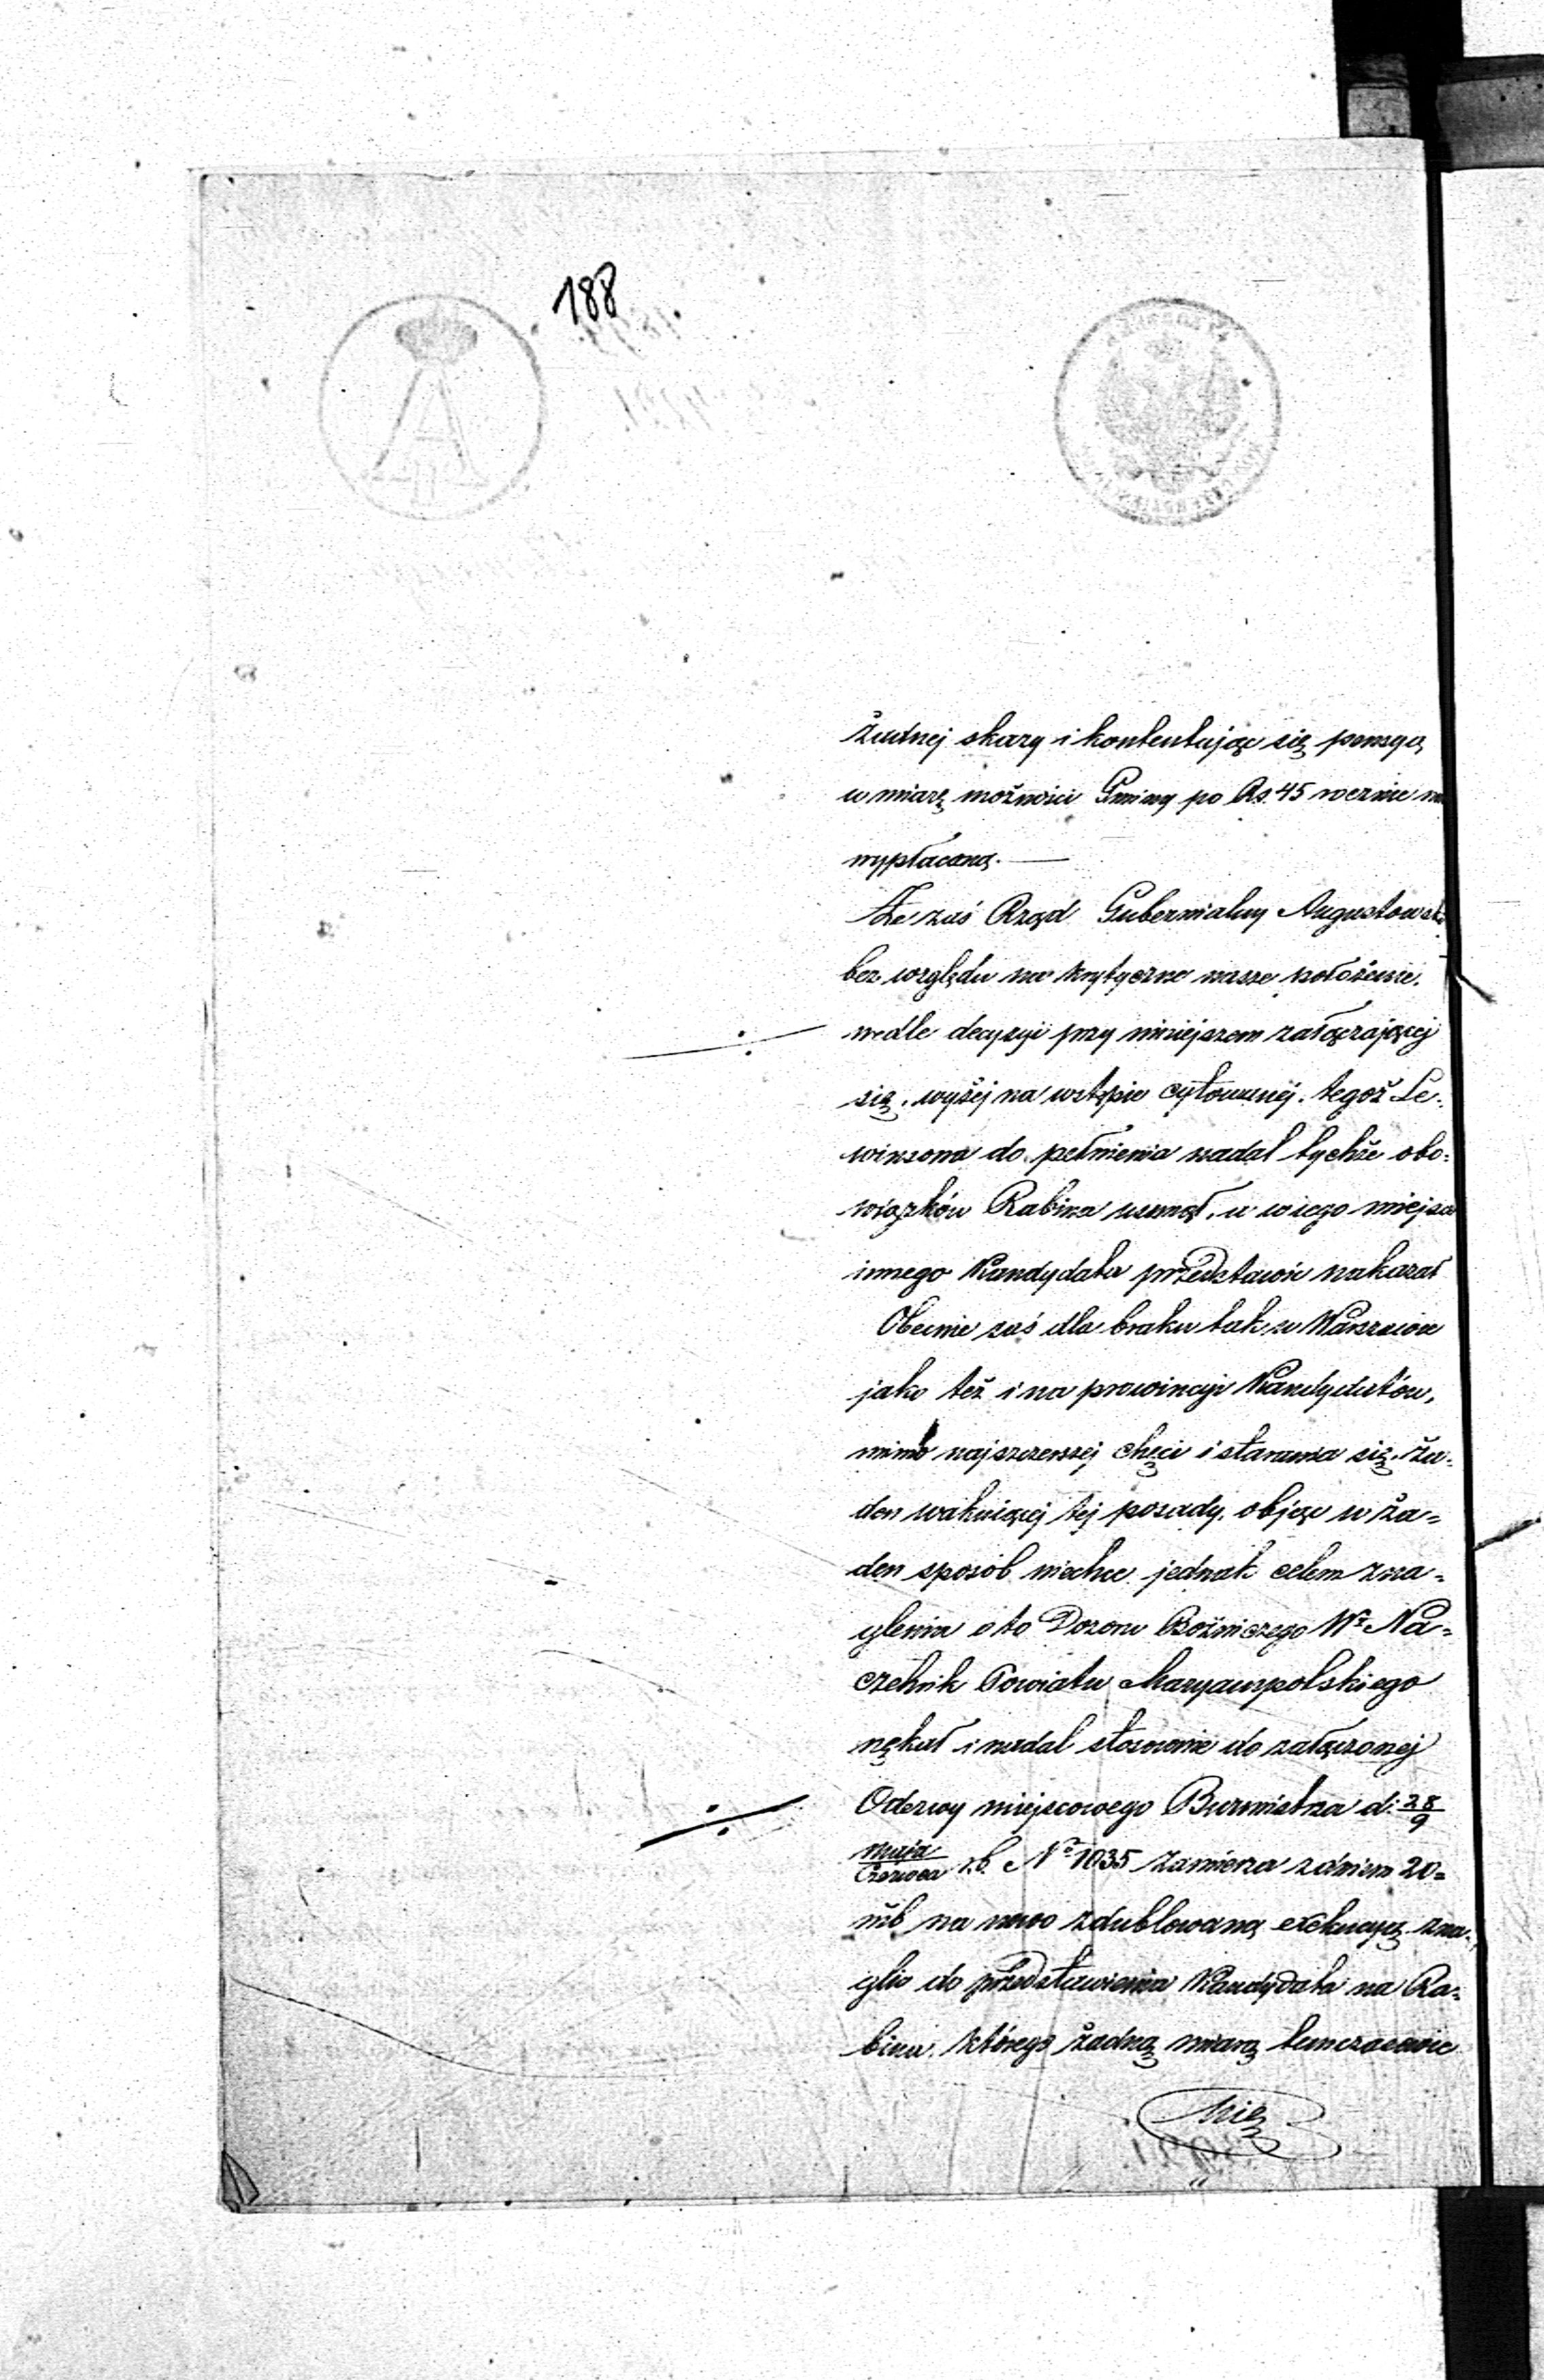 188
żadnej skazy i kontentując się pensyą
w miarę możności Gminy po Rs. 45 rocznie
wypłaconą. —
Że zaś Rząd Gubernialny Augustowski
bez względu na krytyczne nasze położenie.
wedle decyzyi przy niniejszem załączającej
się, wyżej na wstępie cytowanej, tegoż Le-
winsona do pełnienia nadal tychże obo=
wiązków Rabina usunął, a w jego miejsce
innego Kandydata przedstawić nakazał
Obecnie zaś dla braku tak w Warszawie
jako też i na prowincyi Kandydatów,
mimo najszczerszej chęci i starania się, ża=
den wakującej tej posady, objąć w ża=
den sposób niechce. jednak celem zna=
glenia o to Dozoru Bóżniczego Wż Na=
czelnik Powiatu Maryampolskiego
nękał i nadal stosownie do załączonej
Odezwy miejscowego Burmistrza d: 28/9
Maja/Czerwca r.b. Nº 1035 zamierza zdniem 20=
mb na nowo zdublowaną exekucyą zna=
glić do przedstawienia Kandydata na Ra=
bina, którego żadną miarą tymczasowie